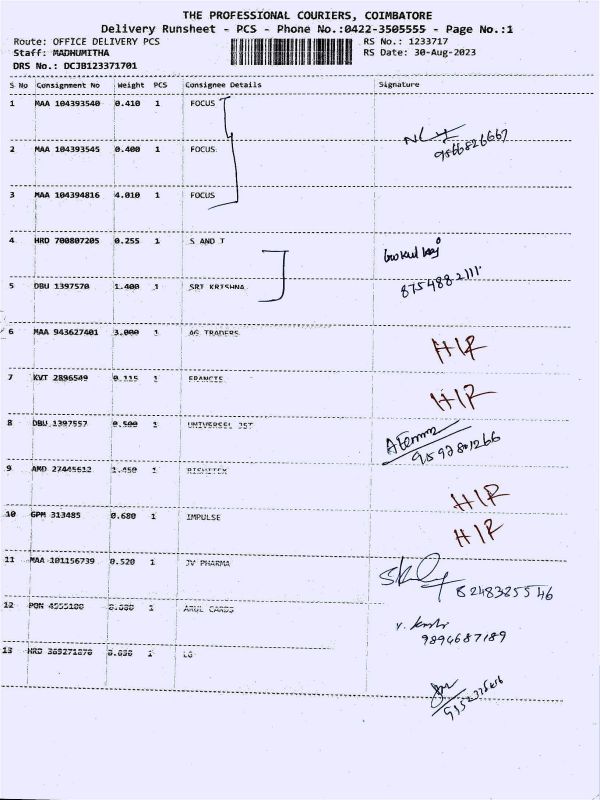 THE PROFESSIONAL COURIERS, COIMBATORE
Delivery Runsheet - PCS - Phone No.:0422-3505555 - Page No.:1
Route: OFFICE DELIVERY PCS
RS No.: 1233717
Staff: MADHUMITHA
RS Date: 30-Aug-2023
DRS No.: DCJB123371701
S No Consignment No Weight PCS Consignee Details Signature
1 MAA 104393540 0.410 1 FOCUS
2 MAA 104393545 0.400 1 FOCUS
9566826667
3 MAA 104394816 4.010 1 FOCUS
4 HRD 700807205 0.255 1 S AND T
5 DBU 1397570 1.400 1 SRI KRISHNA
8754882111
6 MAA 943627401 3.000 1 AG TRADERS
HIR
7 KVT 2896549 0.115 1 FRANCIS
HIR
8 DBU 1397557 0.500 1 UNIVERSEL JST
9592801266
9 AMD 27445612 1.450 1
HIR
10 GPM 313485 0.680 1 IMPULSE
HIR
11 MAA 101156739 0.520 1 JV PHARMA
8248325546
12 PON 4555180 1 ARUL CARDS
9894687189
13 HRD 369271878 1 LG